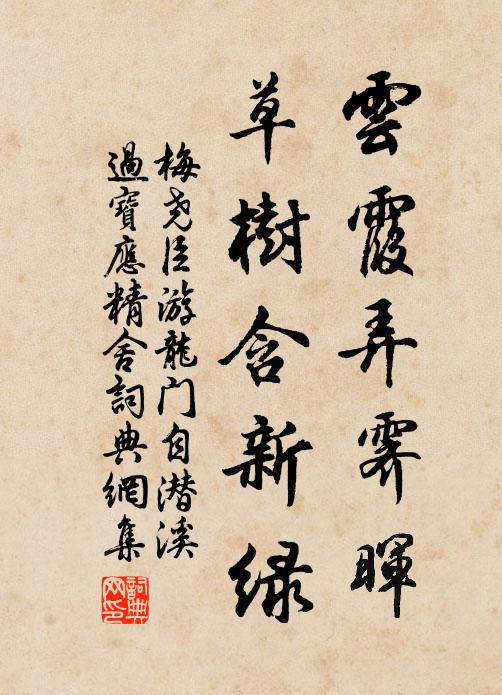 雲霞弄霽暉
草樹含新緑
梅尧臣游龍门自潜溪
過寶應精舍詞典網集
詞典网印